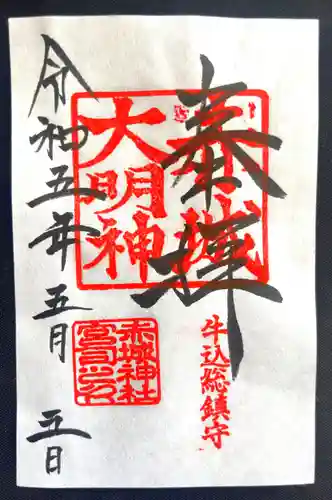 奉拝
赤城
大明神
牛込総鎮守
赤城神社
宮司之印
令和五年五月五日